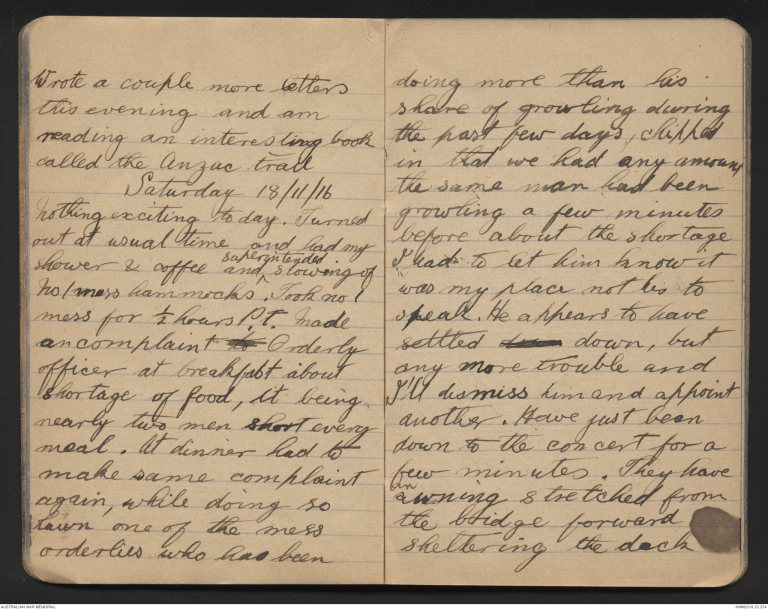 Wrote a couple more letters
this evening and am
reading an interesting book
called the Anzac trail
Saturday 18/11/16
Nothing exciting today. Turned
out at usual time and had my
shower & coffee and superintended stowing of
No 1 mess hammocks. Took no 1
mess for ½ hours P.T. Made
an complaint to Orderly
officer at breakfast about
shortage of food, it being
nearly two men short every
meal. At dinner had to
make same complaint
again, while doing so
one of the mess
orderlies who has been
doing more than his
share of growling during
the past few days, chipped
in that we had any amount
the same man had been
growling a few minutes
before about the shortage
I had to let him know it
was my place not his to
speak. He appears to have
settled down, but
any more trouble and
I'll dismiss him and appoint
another. Have just been
down to the concert for a
few minutes. They have
an awning stretched from
the bridge forward
sheltering the deck
AUSTRALIAN WAR MEMORIAL